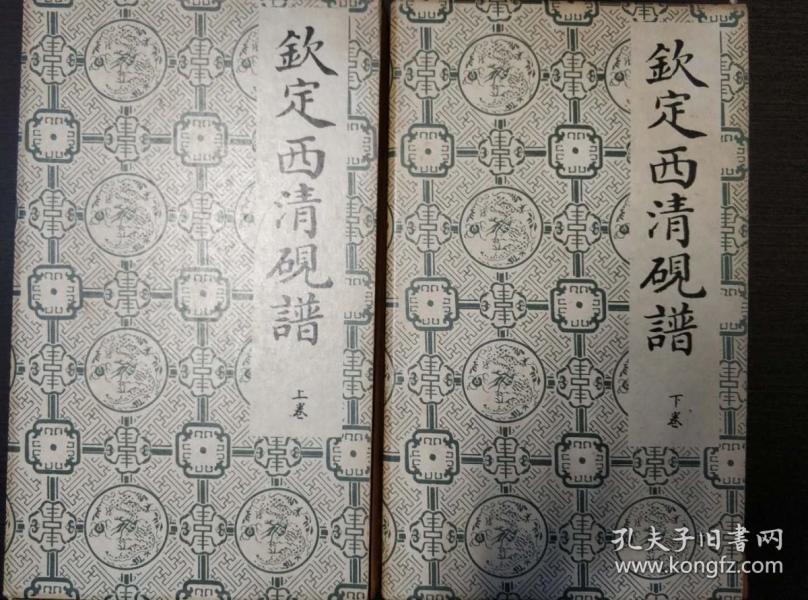 欽定西清硯譜
上卷
欽定西清硯譜
下卷
孔夫子旧書网
www.kongfz.com